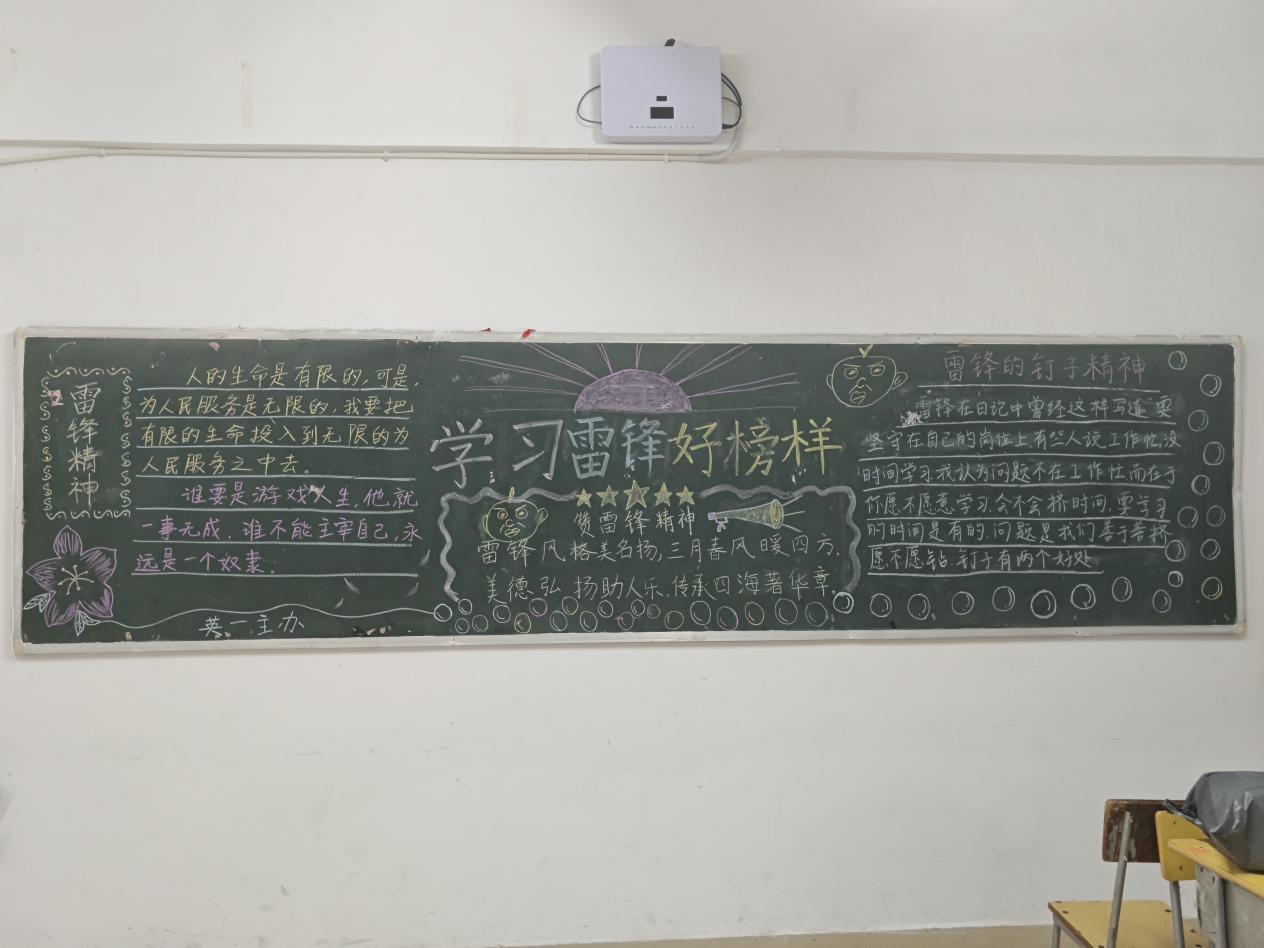 雷锋精神
人的生命是有限的,可是,
为人民服务是无限的,我要把
有限的生命投入到无限的为
人民服务之中去。
谁要是游戏人生,他就
一事无成,谁不能主宰自己,永
远是一个奴隶。
英一主办
学习雷锋好榜样
赞雷锋精神
雷锋风格美名扬,三月春风暖四方.
美德弘扬助人乐,传承四海著华章.
雷锋的钉子精神
雷锋在日记中曾经这样写道"要
坚守在自己的岗位上,有些人说工作忙没
时间学习.我认为问题不在工作忙,而在于
你愿不愿意学习,会不会挤时间,要学习
的时间是有的,问题是我们善于善挤
愿不愿钻.钉子有两个好处